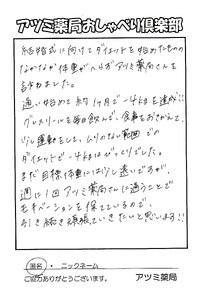 アツミ薬局おしゃべり倶楽部
結婚式に向けてダイエットを始めたものの
なかなか体重がへらずアツミ薬局さんを
訪ねました。
通い始めて約1ヶ月で-4kgを達成!!
グリスリーを毎日飲んで、食事をおきかえて、
少し運動をして、ムリのない範囲での
ダイエットで-4kgはびっくりでした。
まだ目標体重には少し遠いですが、
週に1回アツミ薬局さんに通うことで
モチベーションを保てているので、
引き続き頑張っていきたいと思います!!
匿名・ニックネーム
ご協力ありがとうございます。
アツミ薬局